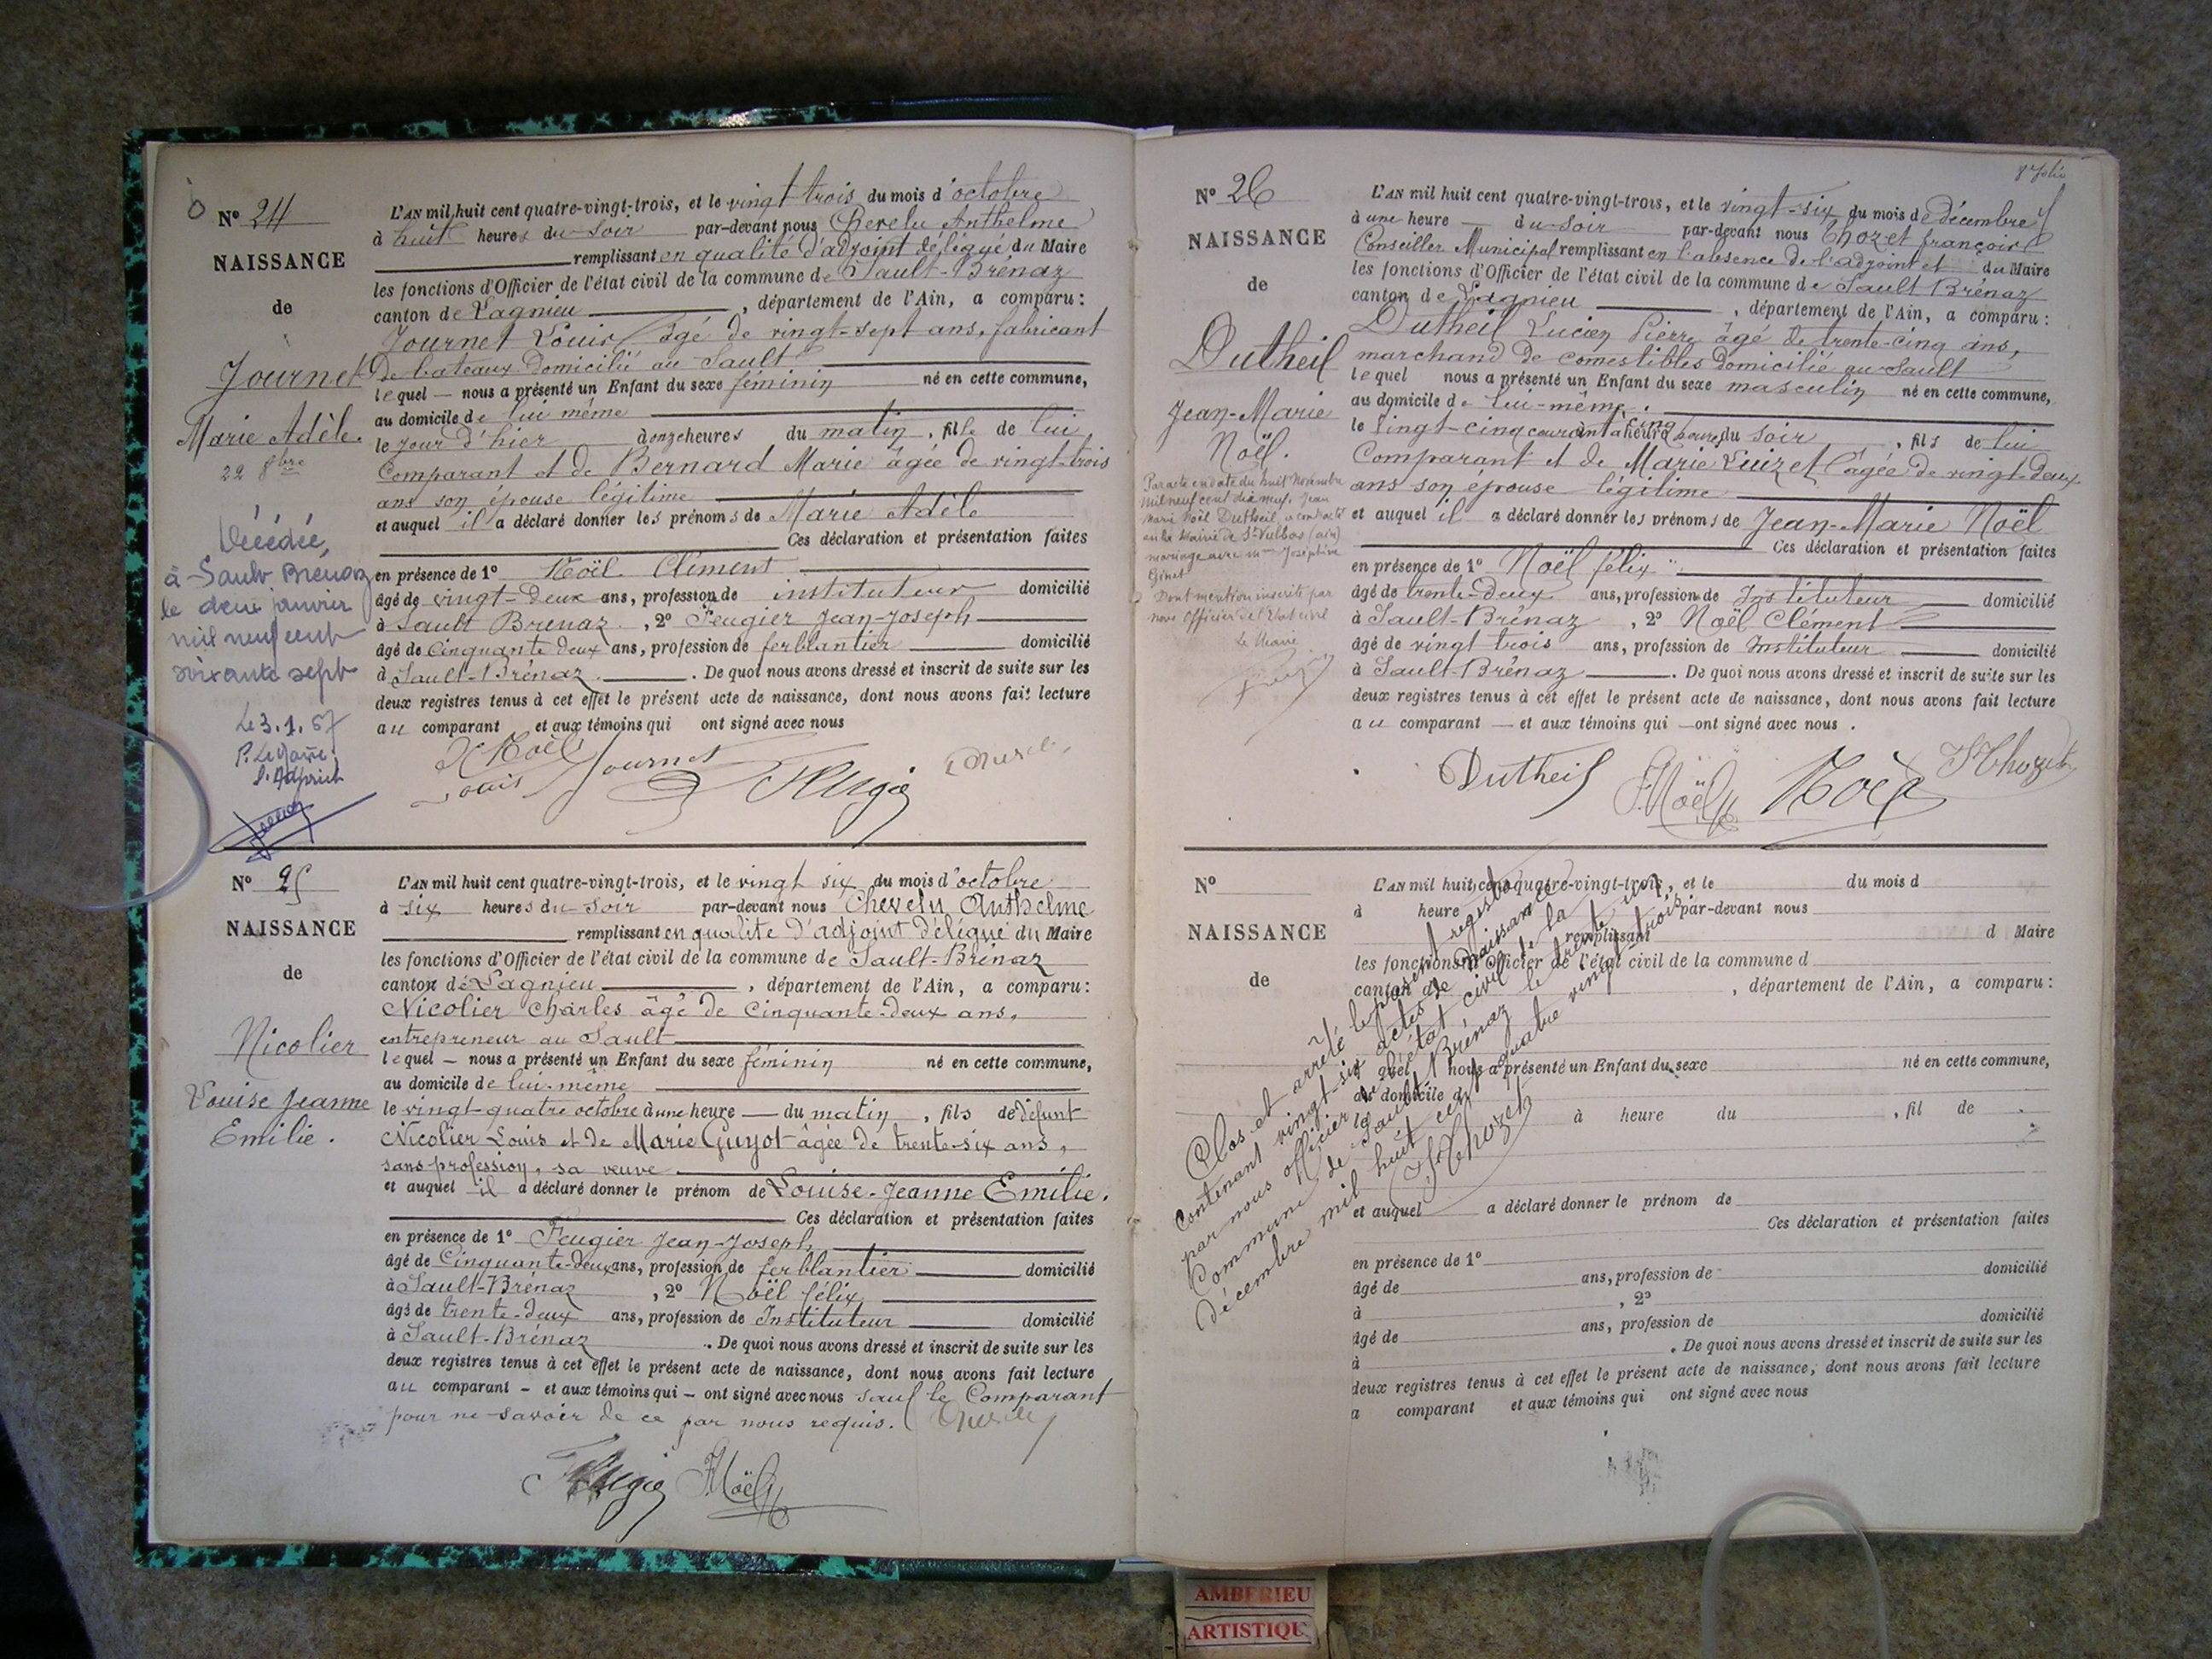 N° 24
NAISSANCE
de
Journet
Marie Adèle.
22 8bre
Décédée,
à Sault Brénaz
le deux janvier
mil neuf cent
soixante sept
Le 3.1.67
P. Le Maire,
L'Adjoint
L'AN mil huit cent quatre-vingt-trois, et le vingt trois du mois d'octobre
à huit heures du soir par-devant nous Chevelu Anthelme
remplissant en qualité d'adjoint délégué du Maire
les fonctions d'Officier de l'état civil de la commune de Sault-Brénaz
canton de Lagnieu , département de l'Ain, a comparu:
Journet Louis âgé de vingt-sept ans, fabricant
de bateaux domicilié au Sault
lequel nous a présenté un Enfant du sexe féminin né en cette commune,
au domicile de lui même
le jour d'hier à onze heures du matin, fille de lui
Comparant et de Bernard Marie âgée de vingt-trois
ans son épouse légitime
et auquel il a déclaré donner les prénoms de Marie Adèle
Ces déclaration et présentation faites
en présence de 1° Noël Clément
âgé de vingt-deux ans, profession de instituteur domicilié
à Sault Brénaz, 2° Feugier Jean-Joseph
âgé de Cinquante deux ans, profession de ferblantier domicilié
à Sault-Brénaz. De quoi nous avons dressé et inscrit de suite sur les
deux registres tenus à cet effet le présent acte de naissance, dont nous avons fait lecture
au comparant et aux témoins qui ont signé avec nous
Noël
Louis Journet
Feugier
N° 25
NAISSANCE
de
Nicolier
Louise Jeanne
Emilie.
L'AN mil huit cent quatre-vingt-trois, et le vingt six du mois d'octobre
à six heures du soir par-devant nous Chevelu Anthelme
remplissant en qualité d'adjoint délégué du Maire
les fonctions d'Officier de l'état civil de la commune de Sault-Brénaz
canton de Lagnieu , département de l'Ain, a comparu:
Nicolier Charles âgé de Cinquante-deux ans,
entrepreneur au Sault
lequel – nous a présenté un Enfant du sexe féminin né en cette commune,
au domicile de lui-même
le vingt-quatre octobre à une heure — du matin, fils de défunt
Nicolier Louis et de Marie Guyot âgée de trente-six ans,
sans profession, sa veuve
et auquel il a déclaré donner le prénom de Louise-Jeanne Emilie.
Ces déclaration et présentation faites
en présence de 1° Feugier Jean-Joseph,
âgé de Cinquante-deux ans, profession de ferblantier domicilié
à Sault-Brénaz, 2° Noël félix,
âgé de trente-deux ans, profession de Instituteur domicilié
à Sault-Brénaz. De quoi nous avons dressé et inscrit de suite sur les
deux registres tenus à cet effet le présent acte de naissance, dont nous avons fait lecture
au comparant – et aux témoins qui – ont signé avec nous sauf le Comparant
pour ne savoir de ce par nous requis.
Feugier F. Noël
N° 26
NAISSANCE
de
Dutheil
Jean-Marie
Noël.
Par acte en date du huit Novembre
mil neuf cent dix neuf, Jean
Marie Noël Dutheil, a contracté
en la Mairie de St Vulbas (ain)
mariage avec Mme Joséphine
Ginet
Dont mention inscrite par
nous Officier de l'Etat civil
Le Maire
8 folio
L'AN mil huit cent quatre-vingt-trois, et le vingt-six du mois de décembre
à une heure — du soir par-devant nous Thozet françois
Conseiller Municipal remplissant en l'absence de l'adjoint et du Maire
les fonctions d'Officier de l'état civil de la commune de Sault Brénaz
canton de Lagnieu , département de l'Ain, a comparu:
Dutheil Lucien Pierre âgé de trente-cinq ans,
marchand de comestibles domicilié au Sault
lequel nous a présenté un Enfant du sexe masculin né en cette commune,
au domicile de lui-même.
le vingt-cinq courant à cinq heures du soir, fils de lui
Comparant et de Marie Luizet âgée de vingt-deux
ans son épouse légitime
et auquel il a déclaré donner les prénoms de Jean-Marie Noël
Ces déclaration et présentation faites
en présence de 1° Noël félix
âgé de trente-deux ans, profession de Instituteur domicilié
à Sault-Brénaz, 2° Noël Clément
âgé de vingt trois ans, profession de Instituteur domicilié
à Sault-Brénaz. De quoi nous avons dressé et inscrit de suite sur les
deux registres tenus à cet effet le présent acte de naissance, dont nous avons fait lecture
au comparant — et aux témoins qui — ont signé avec nous.
Dutheil F. Noël Noël F. Thozet
N°
NAISSANCE
de
L'AN mil huit cent quatre-vingt-trois, et le du mois d
à heure par-devant nous
remplissant d Maire
les fonctions d'Officier de l'état civil de la commune d
canton d , département de l'Ain, a comparu:
quel nous a présenté un Enfant du sexe né en cette commune,
au domicile d
à heure du , fil de
et auquel a déclaré donner le prénom de
Ces déclaration et présentation faites
en présence de 1°
âgé de ans, profession de domicilié
à , 2°
âgé de ans, profession de domicilié
à . De quoi nous avons dressé et inscrit de suite sur les
deux registres tenus à cet effet le présent acte de naissance, dont nous avons fait lecture
a comparant et aux témoins qui ont signé avec nous
Clos et arrêté le présent registre
contenant vingt-six actes de Naissances
par nous officier de l'état civil de la
Commune de Sault Brénaz le trente un
décembre mil huit cent quatre vingt trois.
F. Thozet
AMBERIEU
ARTISTIQUE